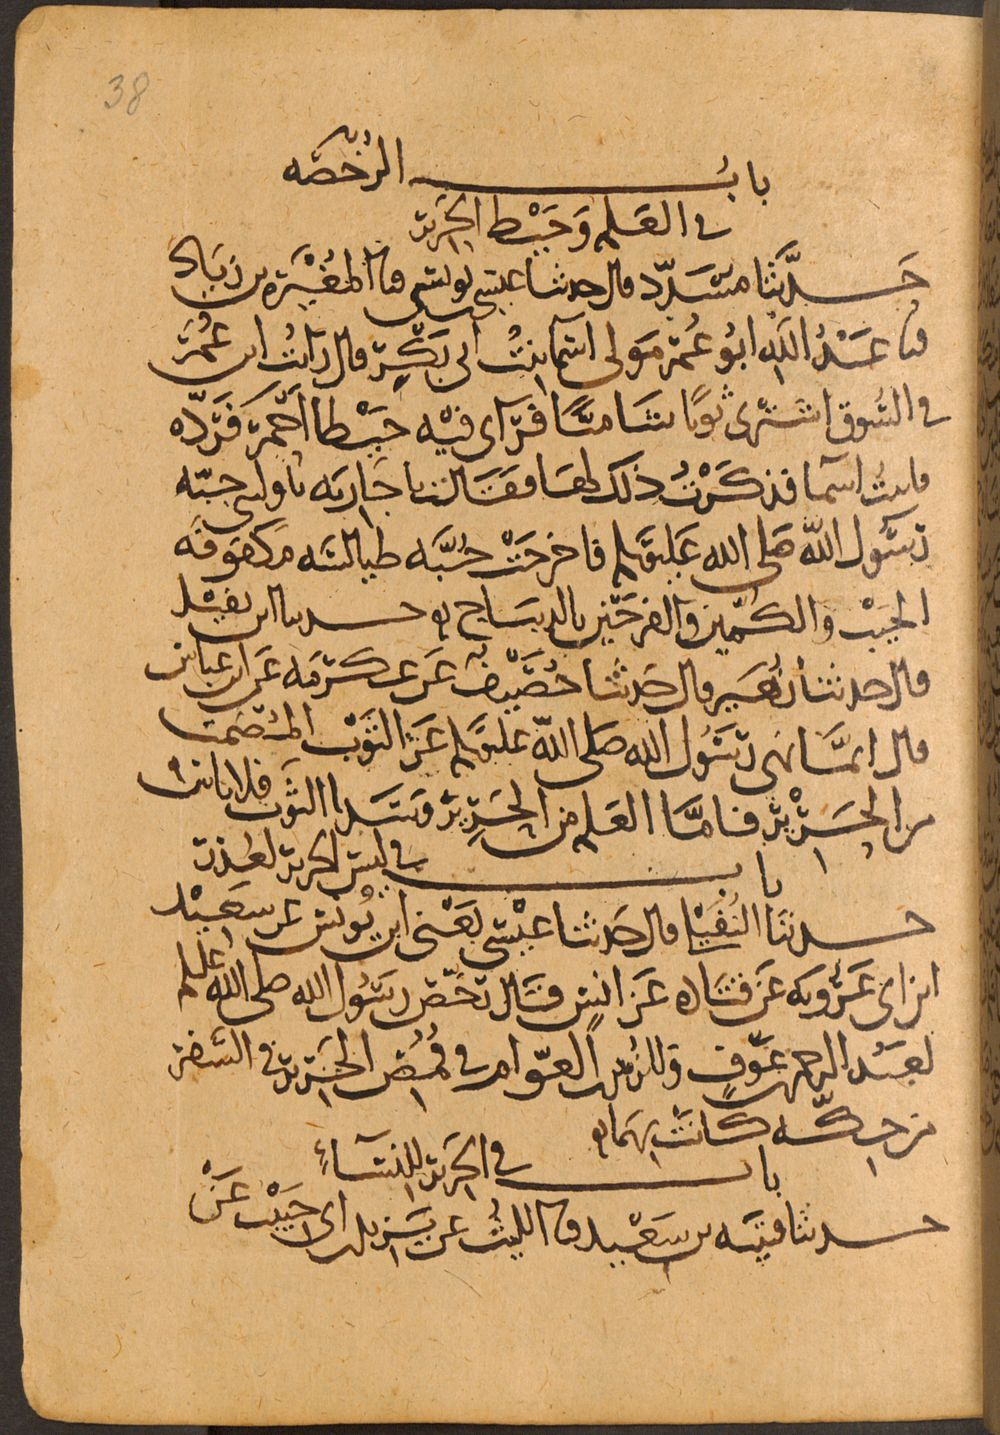 38
باب الرُّخصَه
في العَلَم وَخَيْط الحَرير
حَدَّثَنَا مسَدّد قال حدثنا عيسى بن يونس قال المُغيْرَه بن زيَاد
قال عَبْدُ الله ابُو عُمَر مَولى اسمَا بِنْتُ ابى بَكْرٍ قال رَايْتُ ابن عُمَر
في السُّوق اشتَرى ثوبًا شَاميًّا فرَأى فيْه خَيْطا اَحْمَرَ فَرَدّه
فاتيتُ اسمَا فذكَرْتُ ذلك لهَا فقَالت يا جَاريَه ناوليني جبّه
رَسُول الله صَلى الله عَليه وسَلم فاخرجَتْ جُبَّه طيالسَه مَكفوفَه
الجَيْب والكُمّين والفرجَين بالديبَاج حدثنا ابن نفيْل
قال حدثنا زُهَير قال حَدثنا خُصَيْف عَن عكرَمَه عَن ابن عباس
قال انمَّا نهى رَسُول الله صَلى الله عليه وسَلم عَن الثَوْب المُصْمَت
من الحَريْر فامَّا العَلم من الحَرير وسَدا الثَوب فلا باسْ
باب في لبس الحرير لعُذر
حدثنَا النُفَيْلي قال حَدثنا عيْسى يَعْنى ابن يُونس عن سَعيْد
ابن ابى عَرُوبَه عَن قتَاده عَن انسٍ قَال رَخّصَ رسُول الله صلى الله عليه وسلم
لعَبْد الرحمن بن عَوفٍ وللزُبَير بن العَوّام في قُمُص الحَرير في السَّفَر
من حِكّه كانَت بهمَا
باب في الحَرير للنسَآءِ
حدثنا قتيبَه بن سَعيْد قال الليثُ عن يَزيد بن ابى حَبيْب عَن